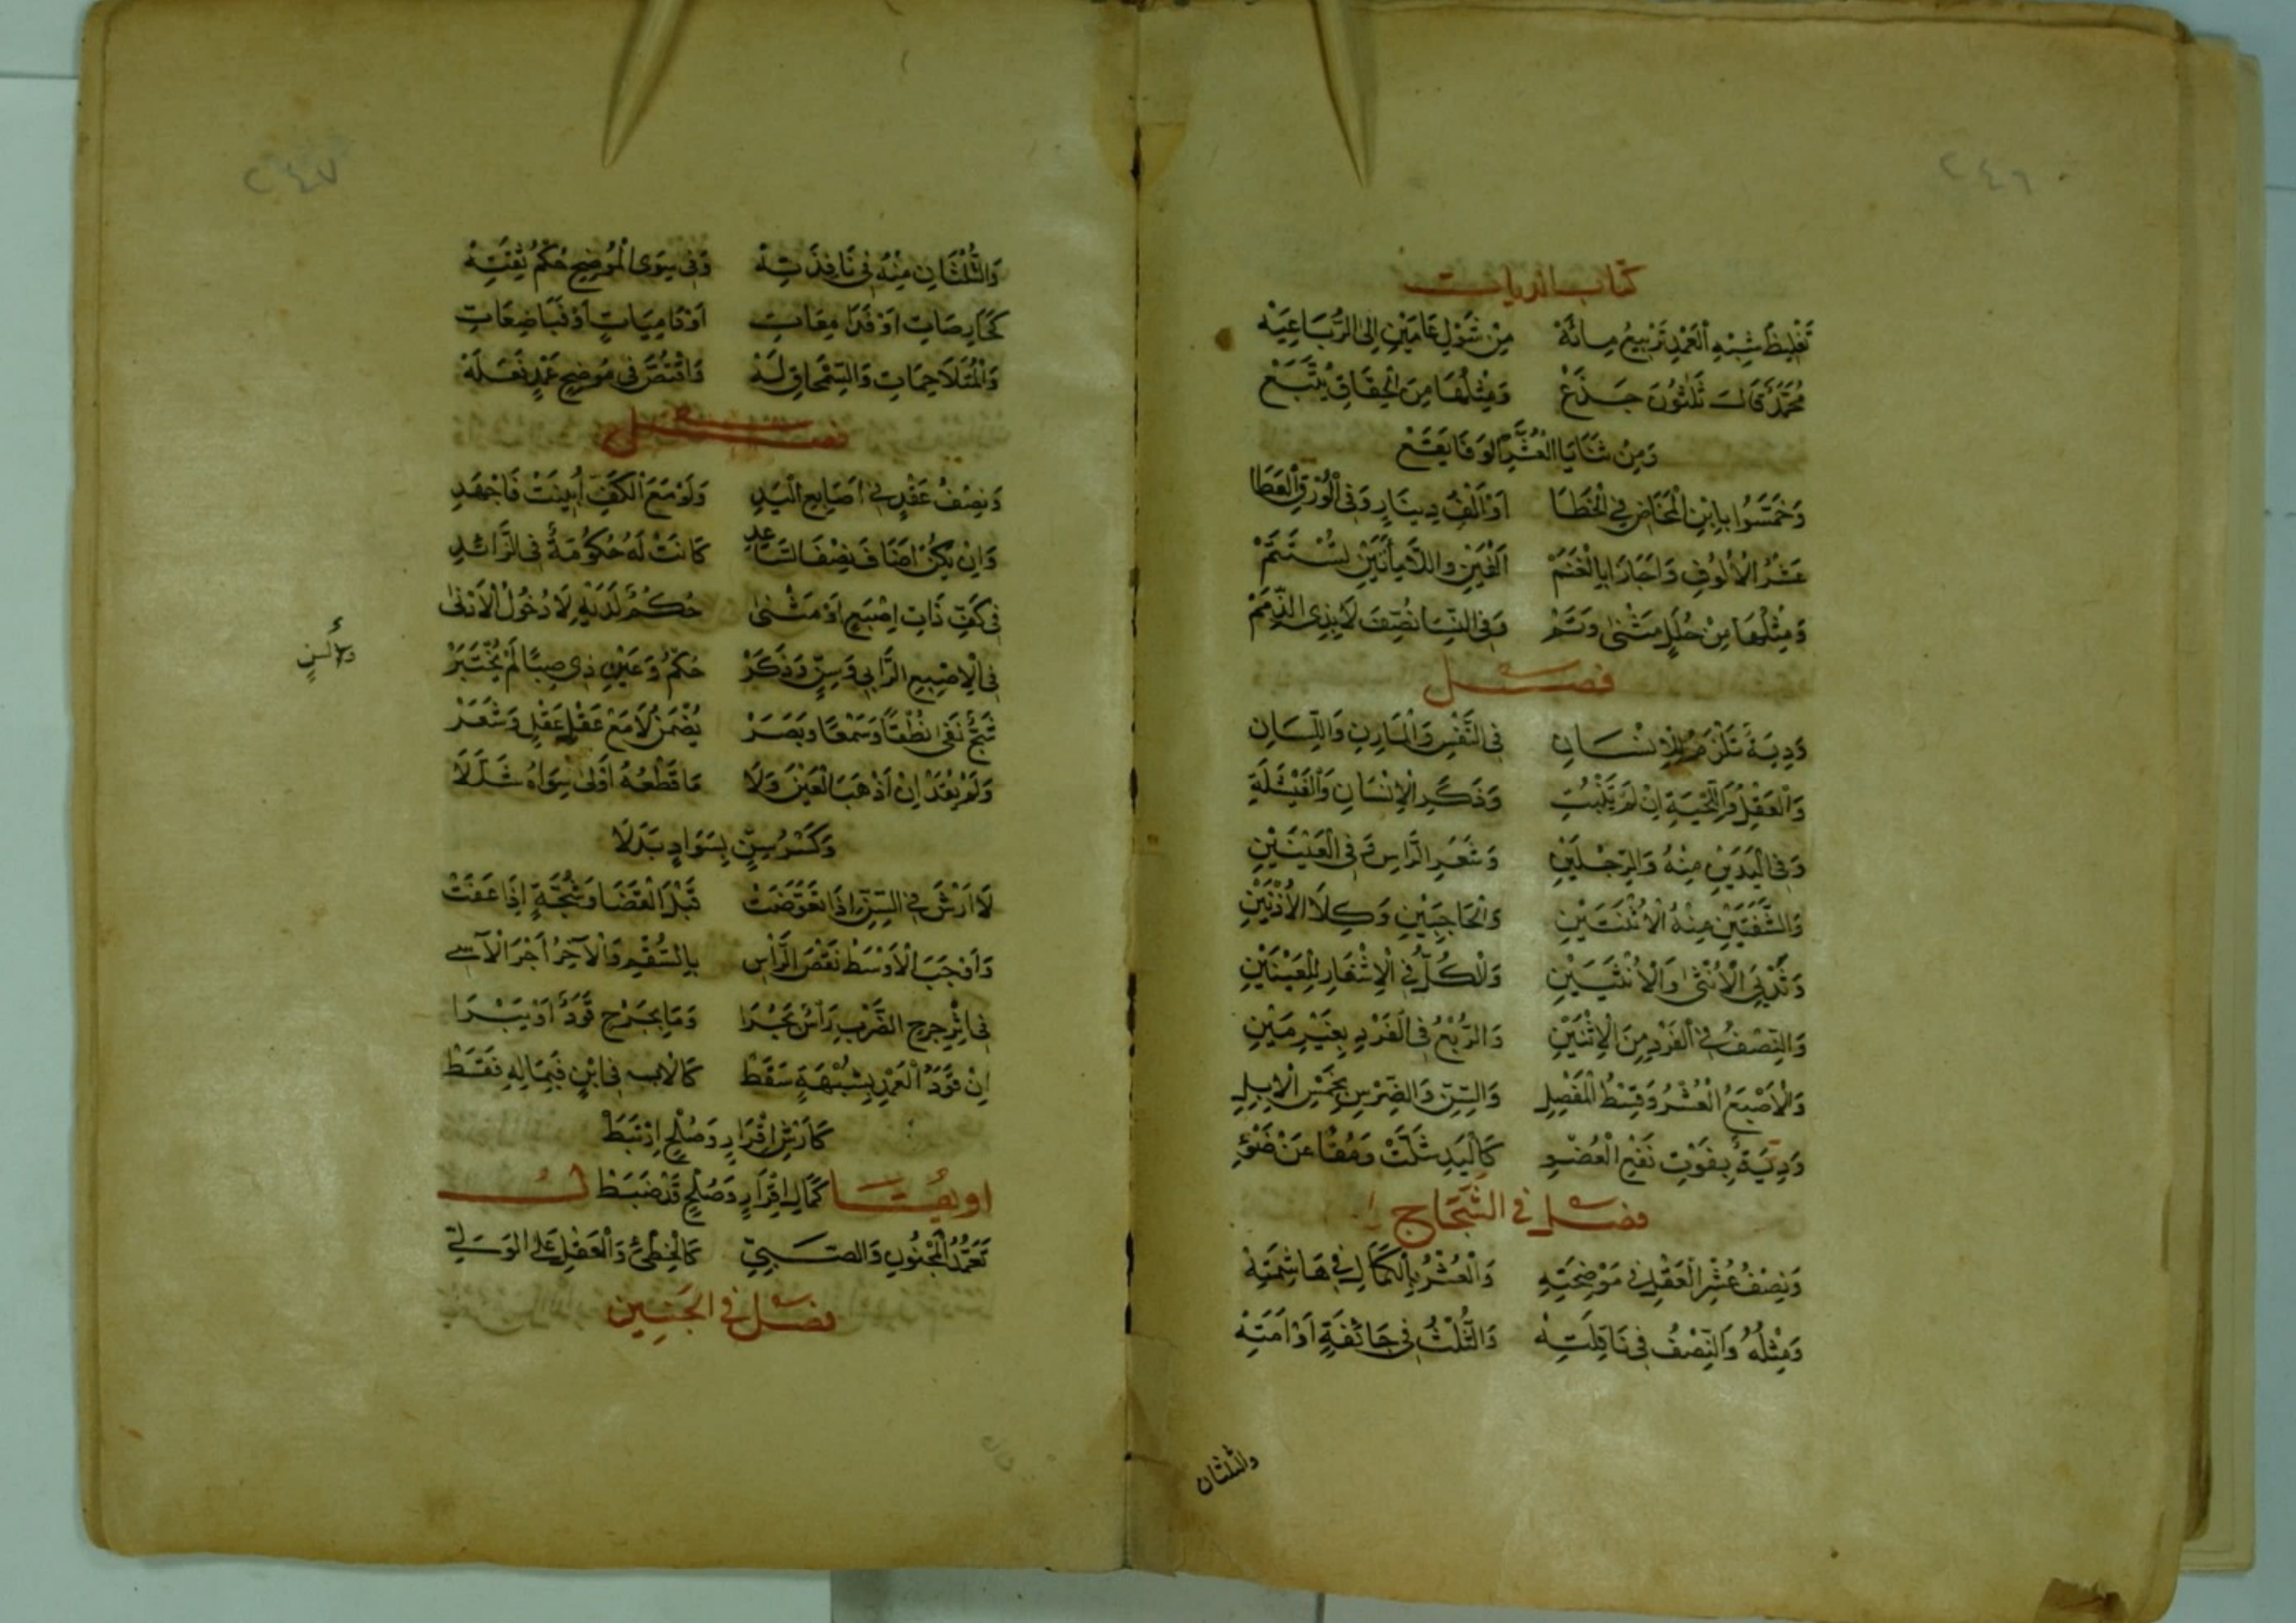 ٢٤٦
كتاب الديات
تَغْلِيظُ شِبْهِ الْعَمْدِ تَرْبِيعُ مِائَهْ مِنْ شَوْلِ عَامَيْنِ اِلَى الرُّبَاعِيَهْ
مُحَمَّدٌ قَالَ ثَلٰثُونَ جَذَعْ وَمِثْلُهَا مِنَ الْحِقَاقِ يُتَّبَعْ
وَمِنْ ثَنَايَا الْعُشْرِ لَوْ قَا يَقَعْ
وَخَمَّسُوا بِابْنِ الْمَخَاضِ فِي الْخَطَا اَوْ اَلْفِ دِينَارٍ وَفِي الْوُرْقِ الْعَطَا
عَشْرُ الْاُلُوفِ وَاَجَازَا بِالْغَنَمْ اَلْفَيْنِ وَاللَّامِائَتَيْنِ تُسْتَتَمْ
وَمِثْلُهَا مِنْ حُلَلٍ مَثْنٰى وَتَمْ وَفِي النِّسَا نُصِّفَ لَا بِذِي الذِّمَمْ
فصل
وَدِيَةٌ تَلْزَمُ لِلْاِنْسَانِ فِي النَّفْسِ وَالْمَارِنِ وَاللِّسَانِ
وَالْعَقْلِ وَاللِّحْيَةِ اِنْ لَمْ تَنْبُتِ وَذَكَرِ الْاِنْسَانِ وَالْفَيْشَلَةِ
وَفِي الْيَدَيْنِ مِنْهُ وَالرِّجْلَيْنِ وَشَعَرِ الرَّاسِ وَفِي الْعَيْنَيْنِ
وَالشَّفَتَيْنِ مِنْهُ الْاثْنَتَيْنِ وَالْحَاجِبَيْنِ وَكِلَا الْاُذْنَيْنِ
وَثَدْيَيِ الْاُنْثٰى وَالْاُنْثَيَيْنِ وَالْكُلُّ فِي الْاَشْفَارِ لِلْعَيْنَيْنِ
وَالنِّصْفُ فِي الْفَرْدِ مِنَ الْاِثْنَيْنِ وَالرُّبْعُ فِي الْفَرْدِ بِغَيْرِ مَيْنِ
وَالْاَصْبَعُ الْعُشْرُ وَقِسْطُ الْمَفْصِلِ وَالسِّنِّ وَالضِّرْسِ بِخَمْسِ الْاِبِلِ
وَدِيَةٌ بِفَوْتِ نَفْعِ الْعُضْوِ كَالْيَدِ شَلَّتْ وَمُقًا عَنْ ضَوْءِ
فصل في الشجاج
وَنِصْفُ عُشْرِ الْعَقْلِ فِي مَوْضِحَتِهِ وَالْعُشْرُ بِالْكَمَالِ فِي هَاشِمَتِهْ
وَمِثْلُهُ وَالنِّصْفُ فِي نَاقِلَتِهْ وَالثُّلْثُ فِي جَائِفَةٍ اَوْ اَمَّتِهْ
والثلثان
٢٤٧
وَالثُّلُثَانِ مِنْهُ فِي نَافِذَتِهْ وَفِي سِوَى الْمُوضِحِ حُكْمُ ثِقَتِهْ
كَحَارِصَاتٍ اَوْ فَدَامِعَاتِ اَوْ دَامِيَاتٍ اَوْ فَبَاضِعَاتِ
وَالْمُتَلَاحِمَاتِ وَالسِّمْحَاقِ لَهْ وَاقْتُصَّ فِي مَوْضِحِ عَمْدٍ فَعَلَهْ
فصل
وَنِصْفُ عَقْدٍ فِي اَصَابِعِ الْيَدِ وَلَوْ مَعَ الْكَفِّ اُبِينَتْ فَاجْهَدِ
وَاِنْ يَكُنْ اَضَافَ نِصْفَ السَّاعِدِ كَانَتْ لَهُ حُكُومَةٌ فِي الزَّائِدِ
فِي كَفٍّ ذَاتِ اِصْبَعٍ اَوْ مَثْنٰى حُكْمٌ لَدَيْهِ لَا دُخُولُ الْاَدْنٰى
فِي الْاِصْبِعِ الزَّابِي وَسِنٍّ وَذَكَرْ حُكْمٌ وَعَيْنِ ذِي صِبًا لَمْ يُخْتَبَرْ
ولألسن
شَجٌّ نَفَى نُطْقًا وَسَمْعًا وَبَصَرْ يُضْمَنُ لَا مَعْ عَقْلِ عَقْلٍ وَشَعَرْ
وَلَمْ يُقَدْ اِنْ اَذْهَبَ الْعَيْنَ وَلَا مَا قَطْعُهُ اَوْلٰى سِوَاهُ شَلَلَا
وَكَسْرُ سِنٍّ بِسَوَادٍ بَدَلَا
لَا اَرْشَ فِي السِّنِّ اِذَا تَعَوَّضَتْ قَبْلَ الْقَضَا وَشَجَّةٍ اِذَا عَفَتْ
وَاَوْجَبَ الْاَوْسَطُ نَقْصَ الرَّأْسِ بِالسُّقْمِ وَالْآخِرُ اَجْرَ الْآسِي
فِي اِثْرِ جَرْحِ الضَّرْبِ رَأْسٌ يَجُرَا وَمَا بِجَرْحٍ قَوَدٌ اَوْ يَبْرَا
اِنْ قَوَدُ الْعَمْدِ بِشُبْهَةٍ سَقَطْ كَالْاَبِ فِي ابْنٍ فَبِمَالِهِ فَقَطْ
كَاَرْشِ اِقْرَارٍ وَصُلْحٍ اِرْتَبَطْ
او يُتَا كَمَالِ اِقْرَارٍ وَصُلْحٍ قَدْ ضَبَطْ ل
تَعَمُّدُ الْمَجْنُونِ وَالصَّبِيِّ كَالْخَطَئِ وَالْعَقْلِ عَلَى الْوَلِيِّ
فصل في الجنين